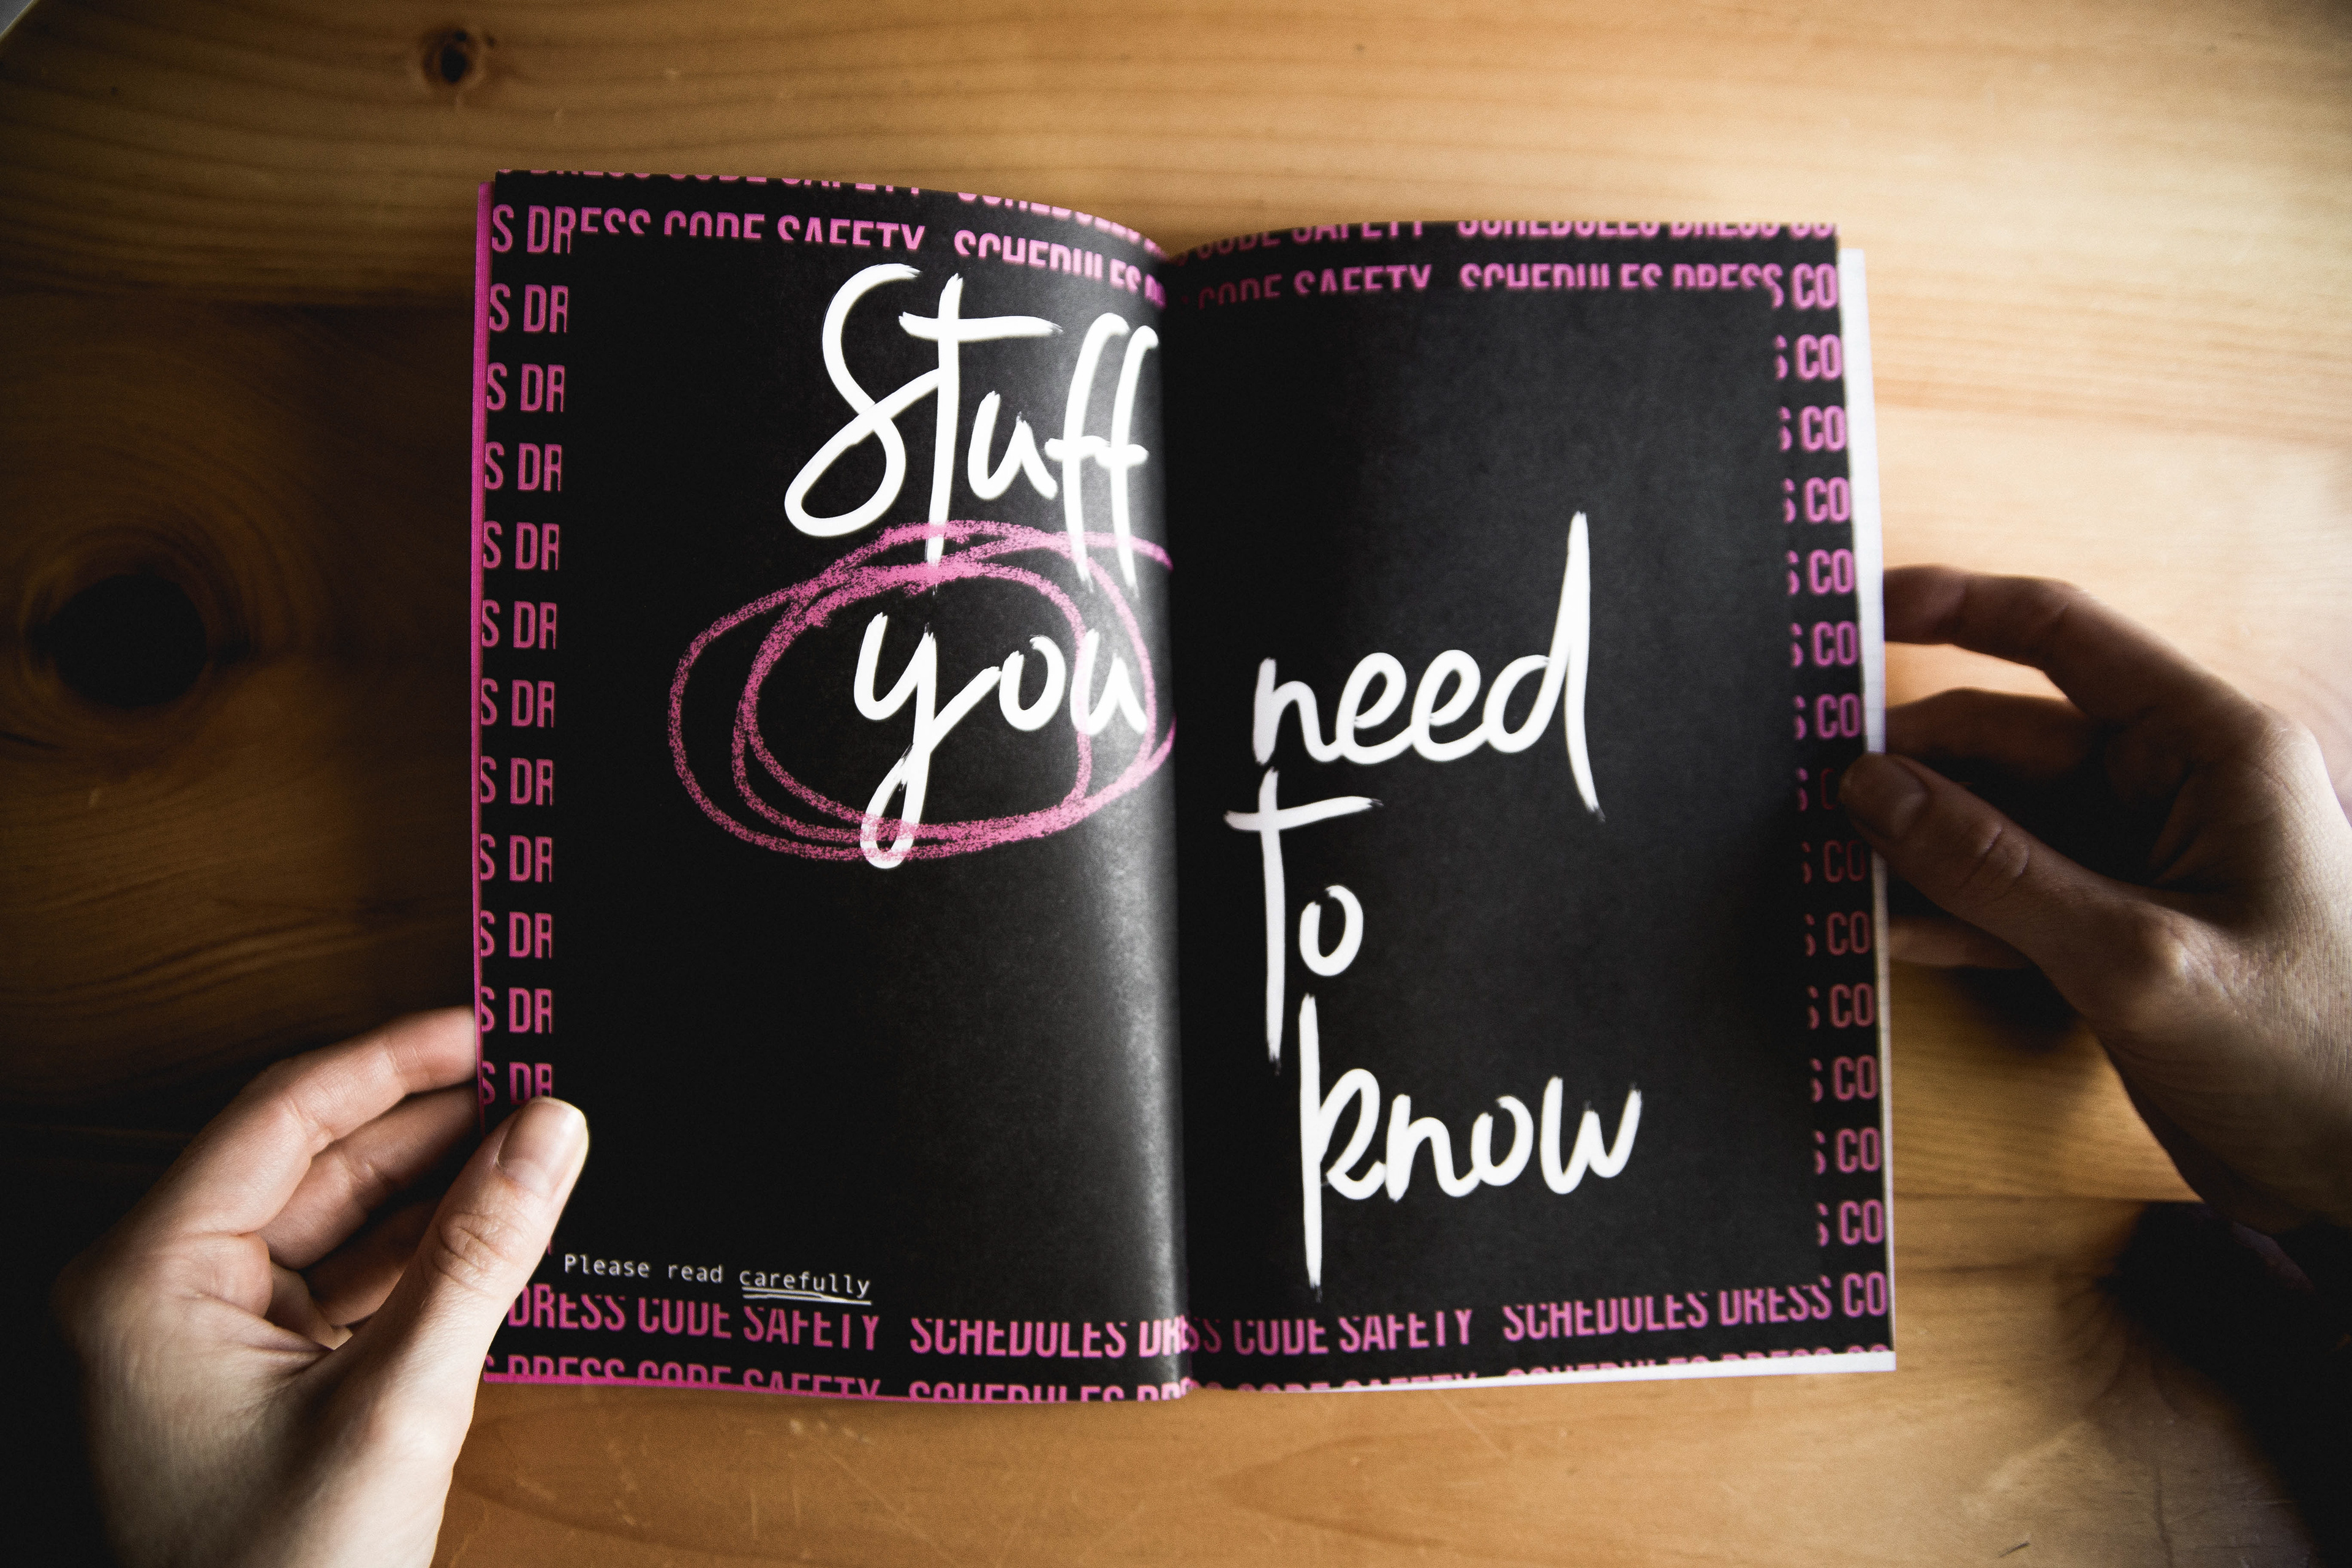 S DRESS CODE SAFETY SCHEDULES
CODE SAFETY SCHEDULES DRESS CO
S DR
S DR
S DR
S DR
S DR
S DR
S DR
S DR
S DR
S DR
S DR
Stuff
you
need
To
know
S CO
S CO
S CO
S CO
S CO
S CO
S CO
S CO
S CO
S CO
S CO
S CO
Please read carefully
DRESS CODE SAFETY SCHEDULES DRESS CODE SAFETY SCHEDULES DRESS CO
S DRESS CODE SAFETY SCHEDULES